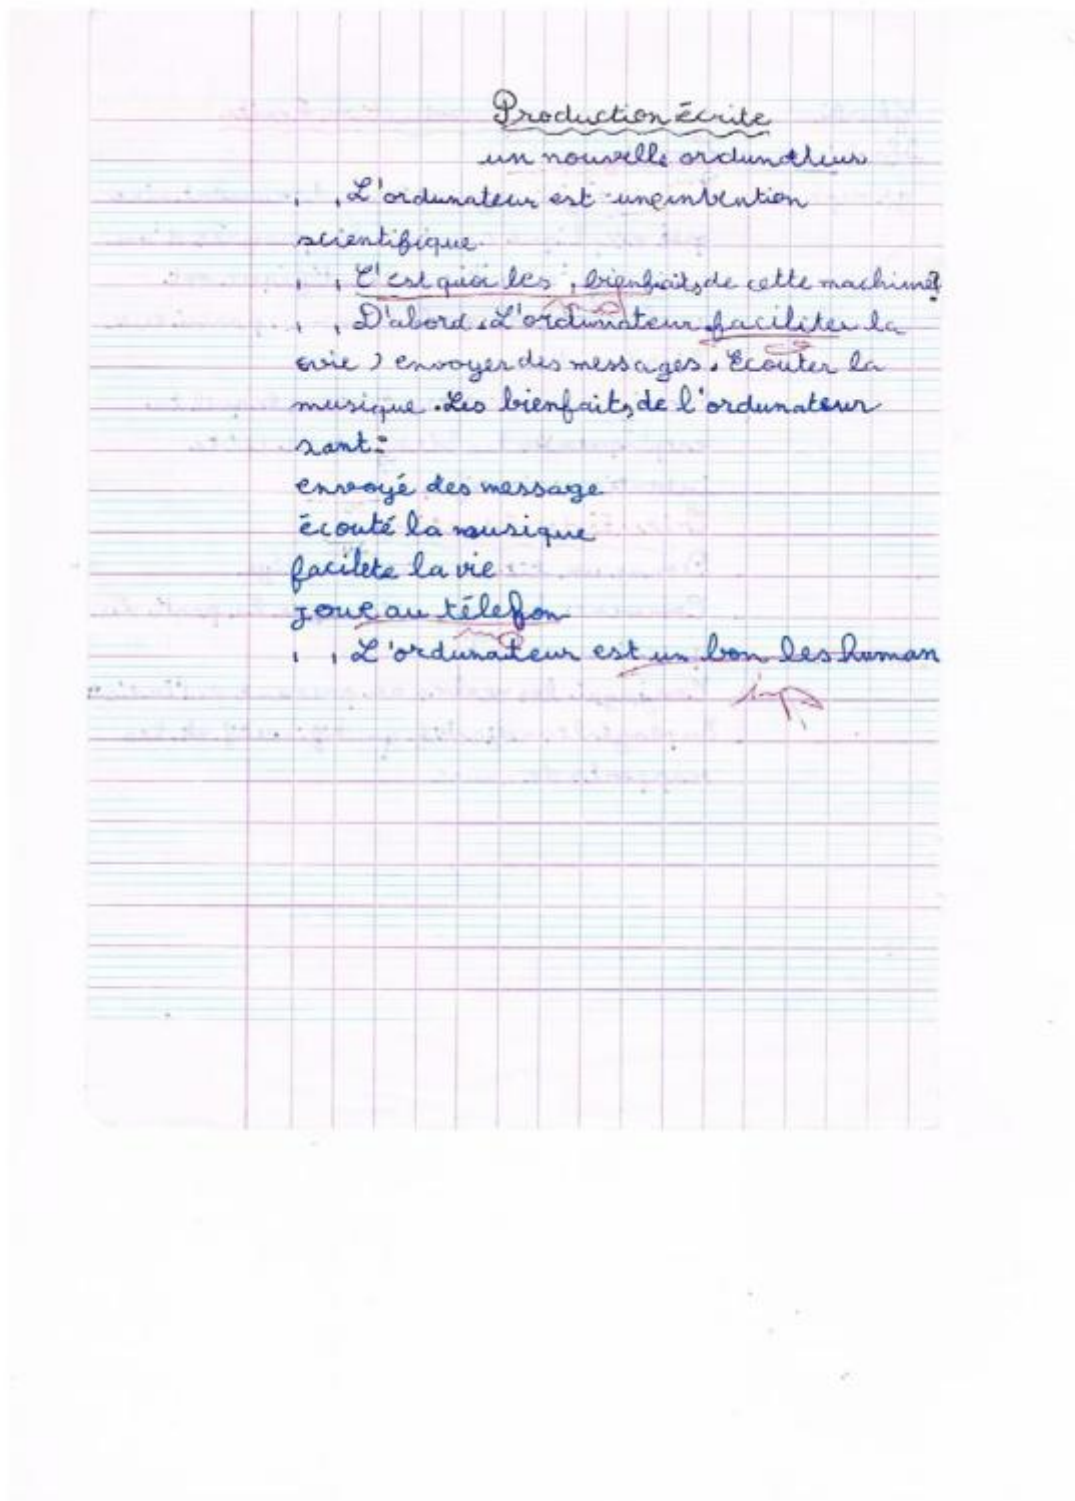 Production écrite
un nouvelle ordunateur
L'ordunateur est une invention
scientifique.
C'est quoi les, bienfaits de cette machine?
D'abord, L'ordunateur faciliter la
vie, envoyer des messages. Ecouter la
musique. Les bienfaits de l'ordunateur
sont:
envoyé des message
écouté la musique
facilete la vie
joue au télefon
L'ordunateur est un bon les human